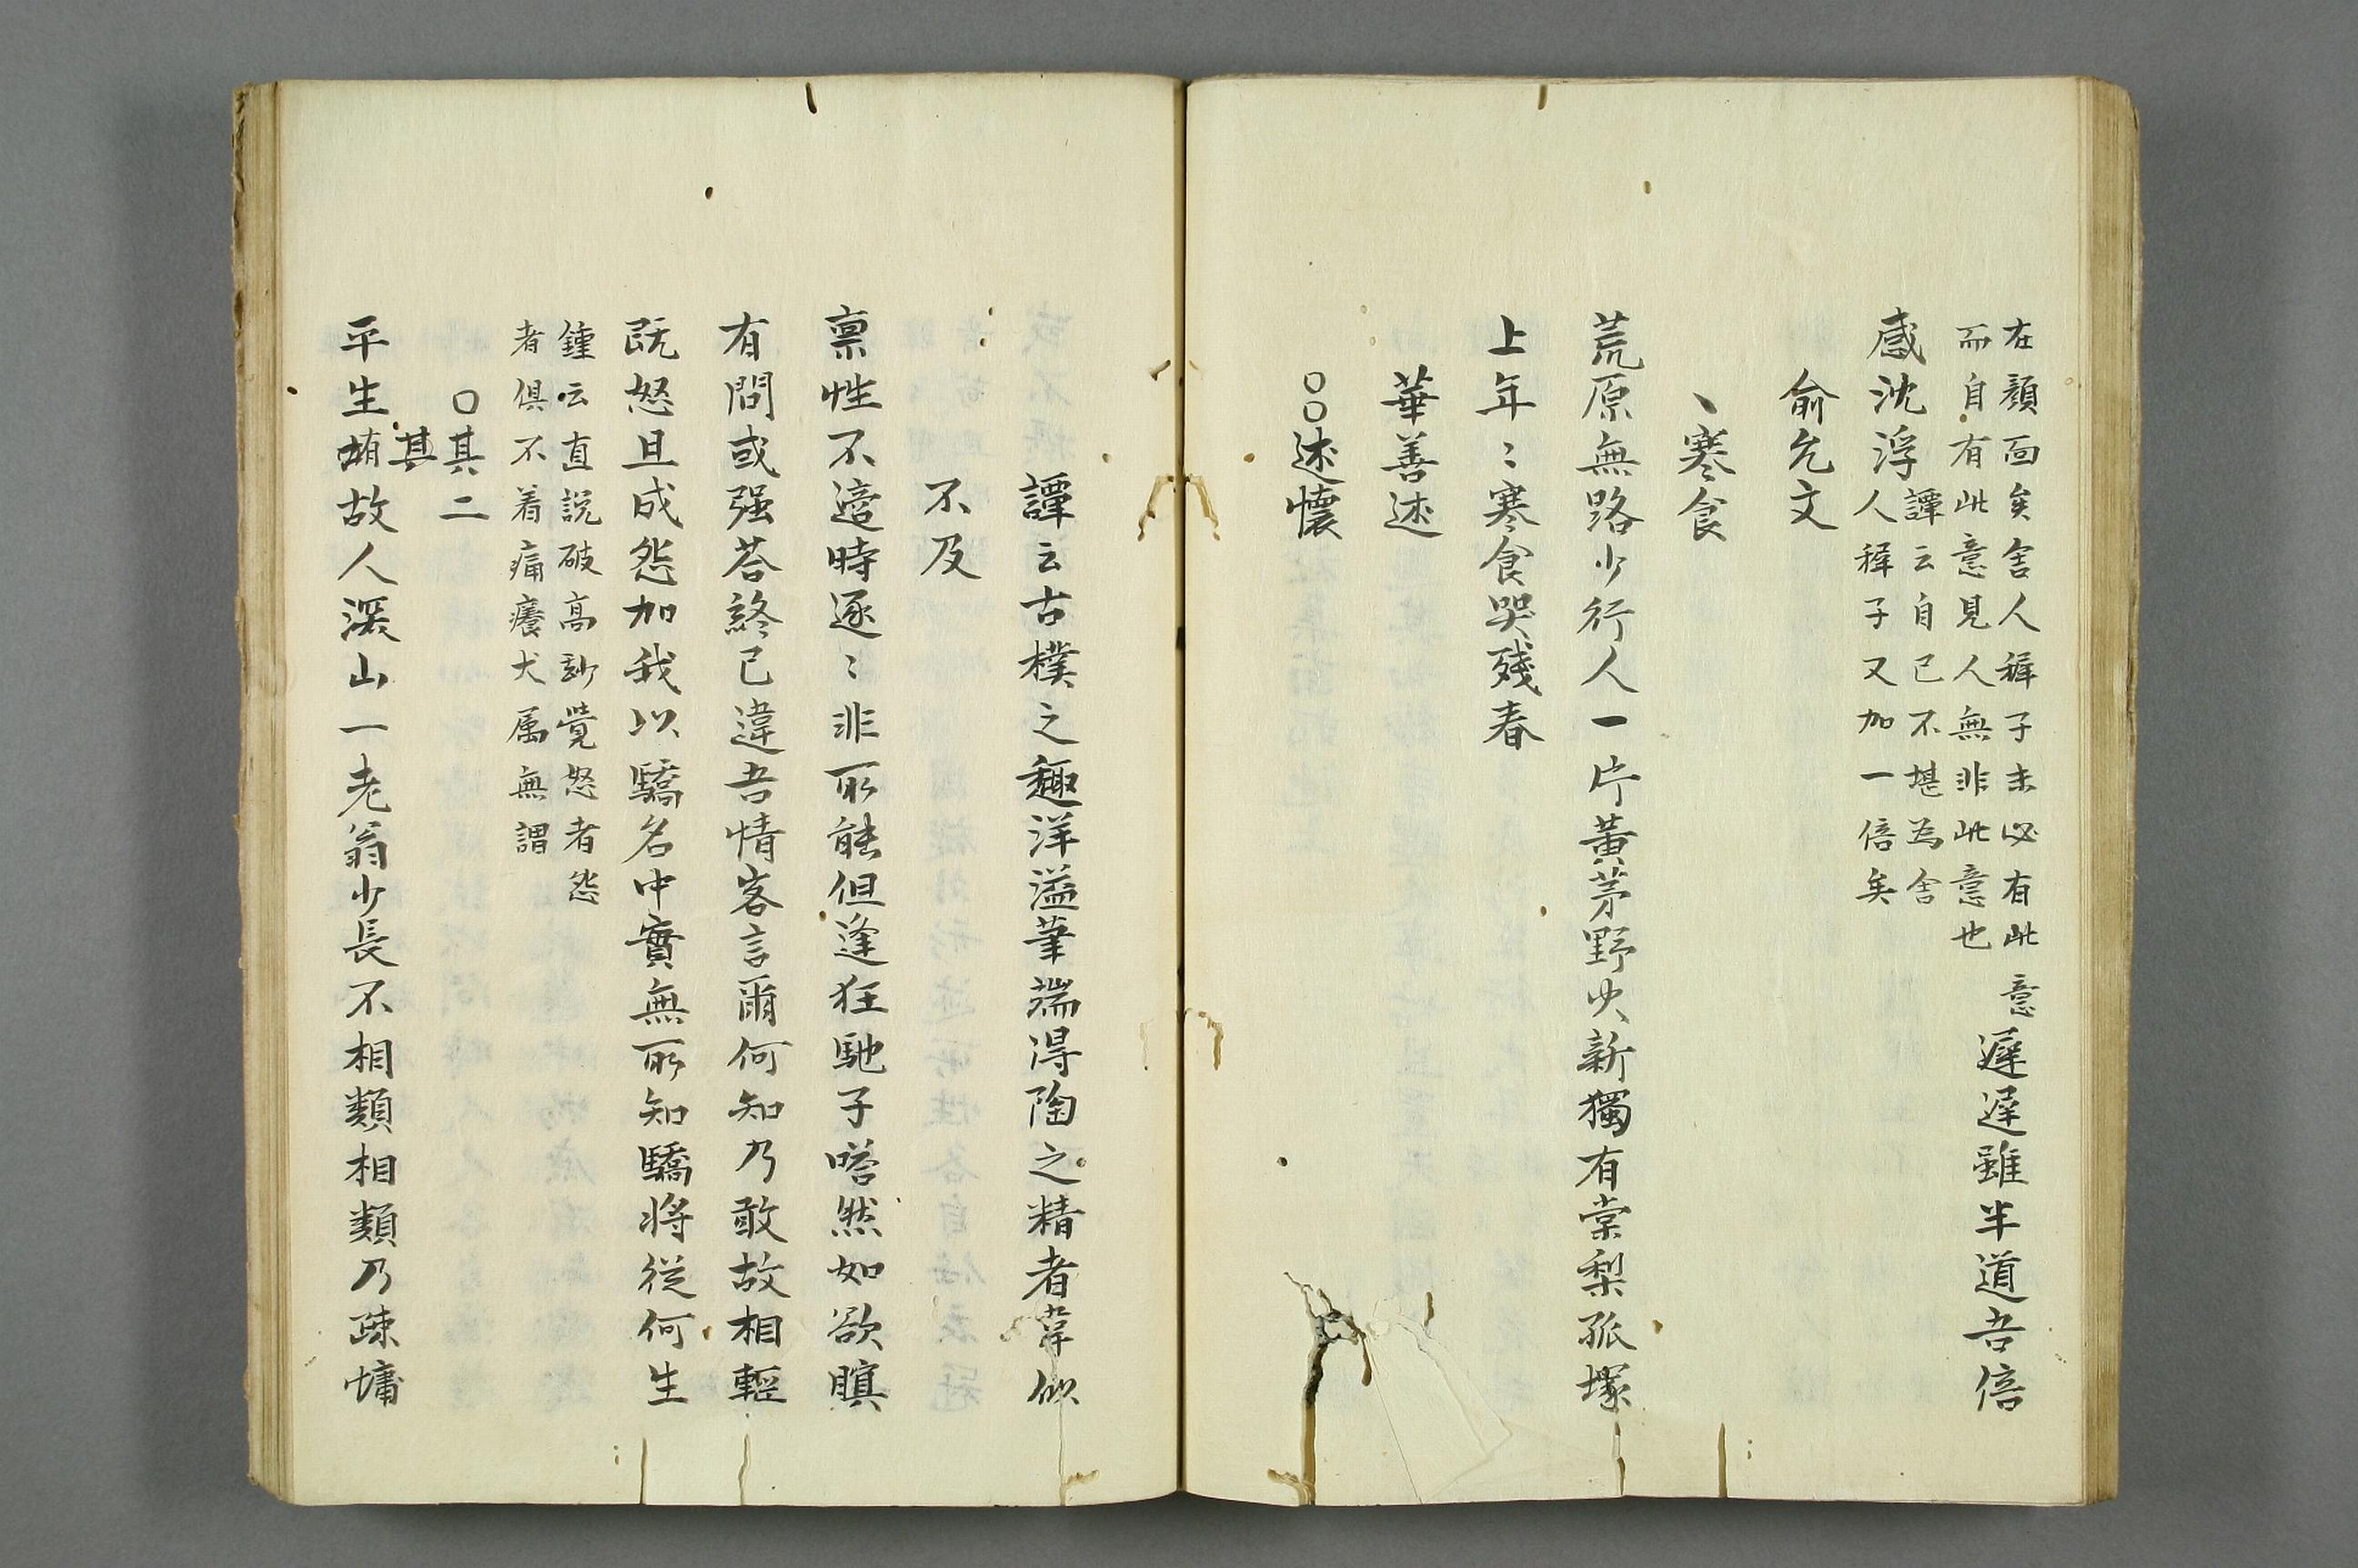 在顏面矣舍人稺子未必有此意
而自有此意見人無非此意也
遲遲雖半道吾倍
感沈浮
譚云自已不堪為舍
人稺子又加一倍矣
俞允文
、寒食
荒原無路少行人一片黃茅野火新獨有棠梨孤塚
上年〻寒食哭殘春
華善述
○○述懷
譚云古樸之趣洋溢筆端得陶之精者韋似
不及
禀性不適時逐〻非所能但逢狂馳子嗒然如欲瞑
有問或强荅終已違吾情客言爾何知乃敢故相輕
既怒且成怨加我以驕名中實無所知驕將從何生
鍾云直說破高妙覺怒者怨
者俱不着痛癢犬属無謂
○其二
其
平生故人深山一老翁少長不相類相類乃疎慵